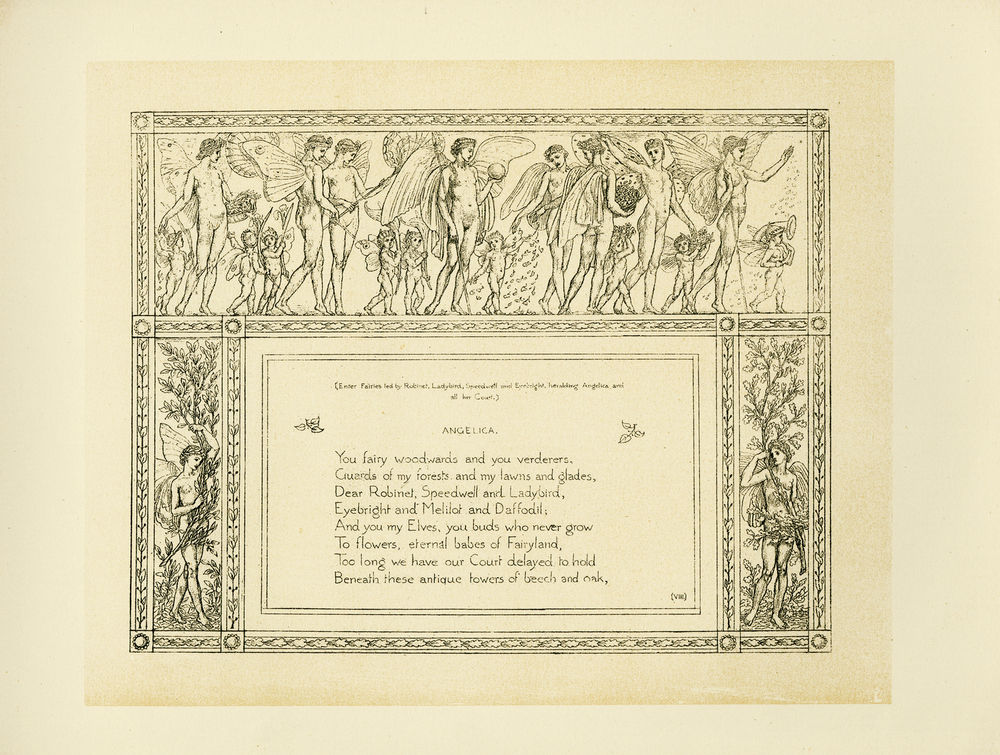 (Enter Fairies led by Robinet, Ladybird, Speedwell and Eyebright, heralding Angelica and
all her Court.)
ANGELICA.
You fairy woodwards and you verderers,
Guards of my forests and my lawns and glades,
Dear Robinet, Speedwell and Ladybird,
Eyebright and Melilot and Daffodil;
And you my Elves, you buds who never grow
To flowers, eternal babes of Fairyland,
Too long we have our Court delayed to hold
Beneath these antique towers of beech and oak,
(VIII)